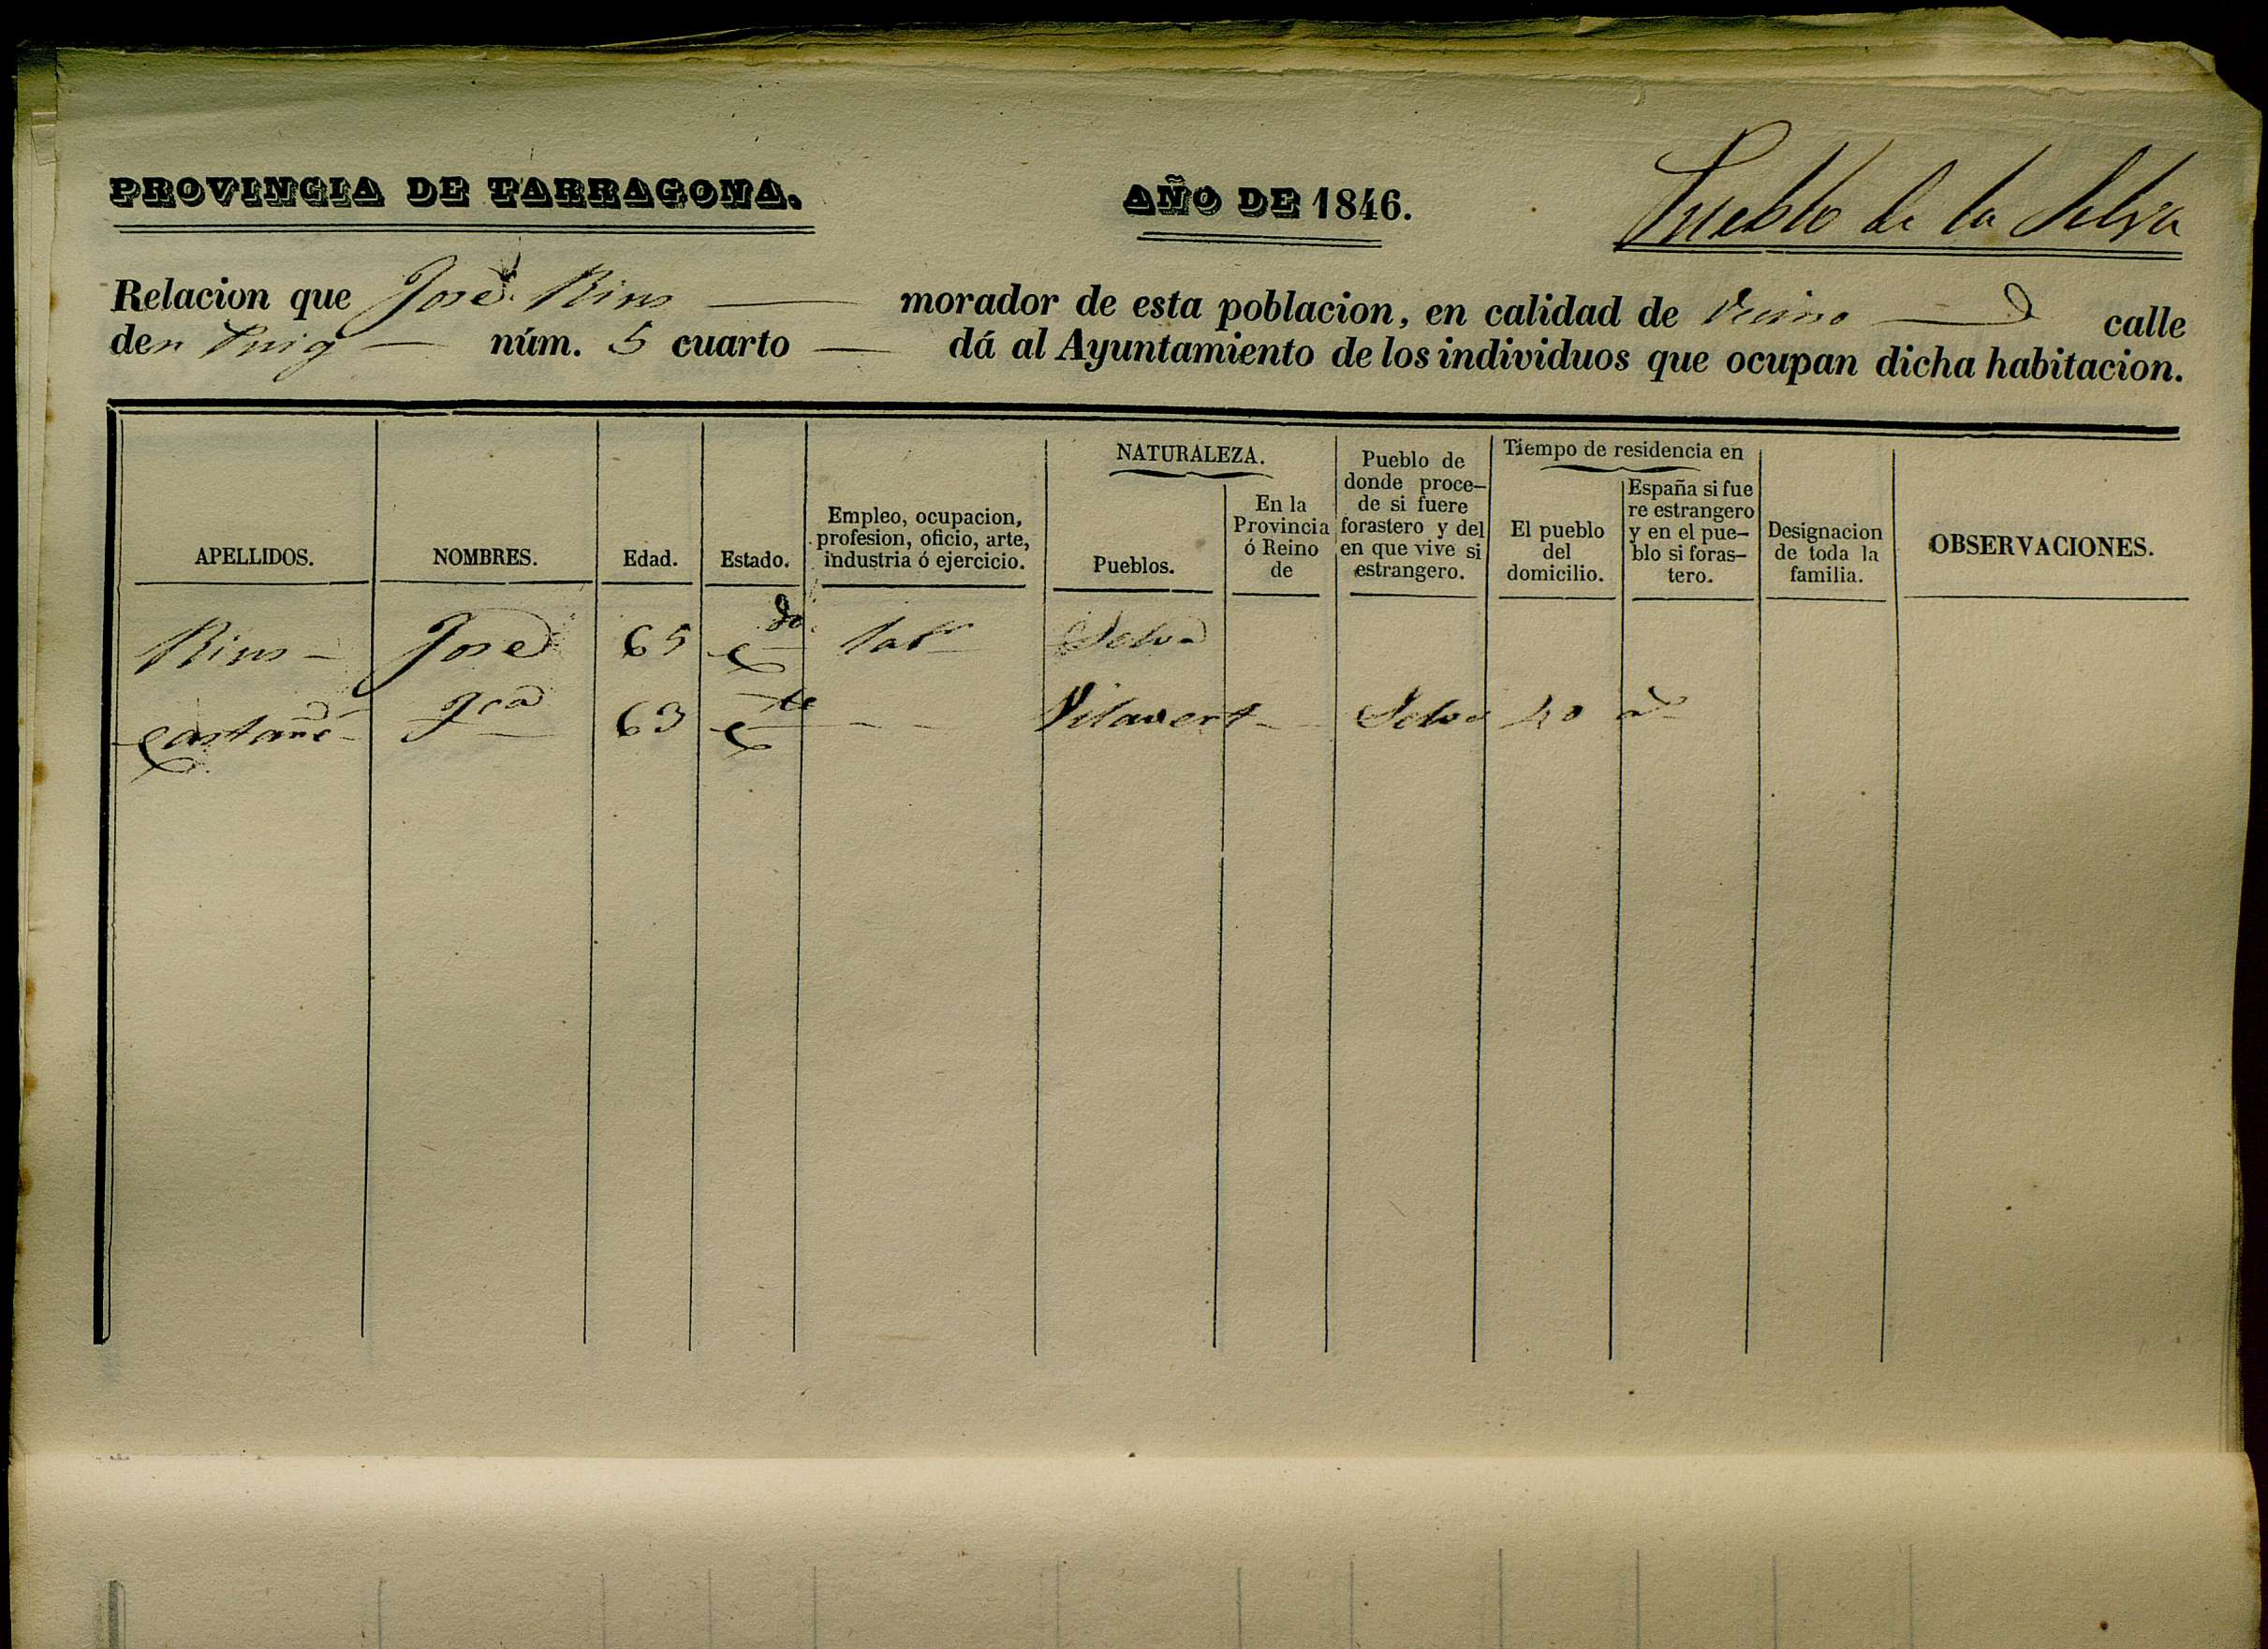 PROVINCIA DE TARRAGONA. AÑO DE 1846. Pueblo de la Selva
Relacion que José Rius morador de esta poblacion, en calidad de Vecino calle
den Puig núm. 5 cuarto — dá al Ayuntamiento de los individuos que ocupan dicha habitacion.
NATURALEZA.
Tiempo de residencia en
APELLIDOS.
NOMBRES.
Edad.
Estado.
Empleo, ocupacion,
profesion, oficio, arte,
industria ó ejercicio.
Pueblos.
En la
Provincia
ó Reino
de
Pueblo de
donde proce-
de si fuere
forastero y del
en que vive si
estrangero.
El pueblo
del
domicilio.
España si fue
re estrangero
y en el pue-
blo si foras-
tero.
Designacion
de toda la
familia.
OBSERVACIONES.
Rius - José 65 C.do labr Selva
Castañé - 63 C. - - Vilavert - - Selva 40 as